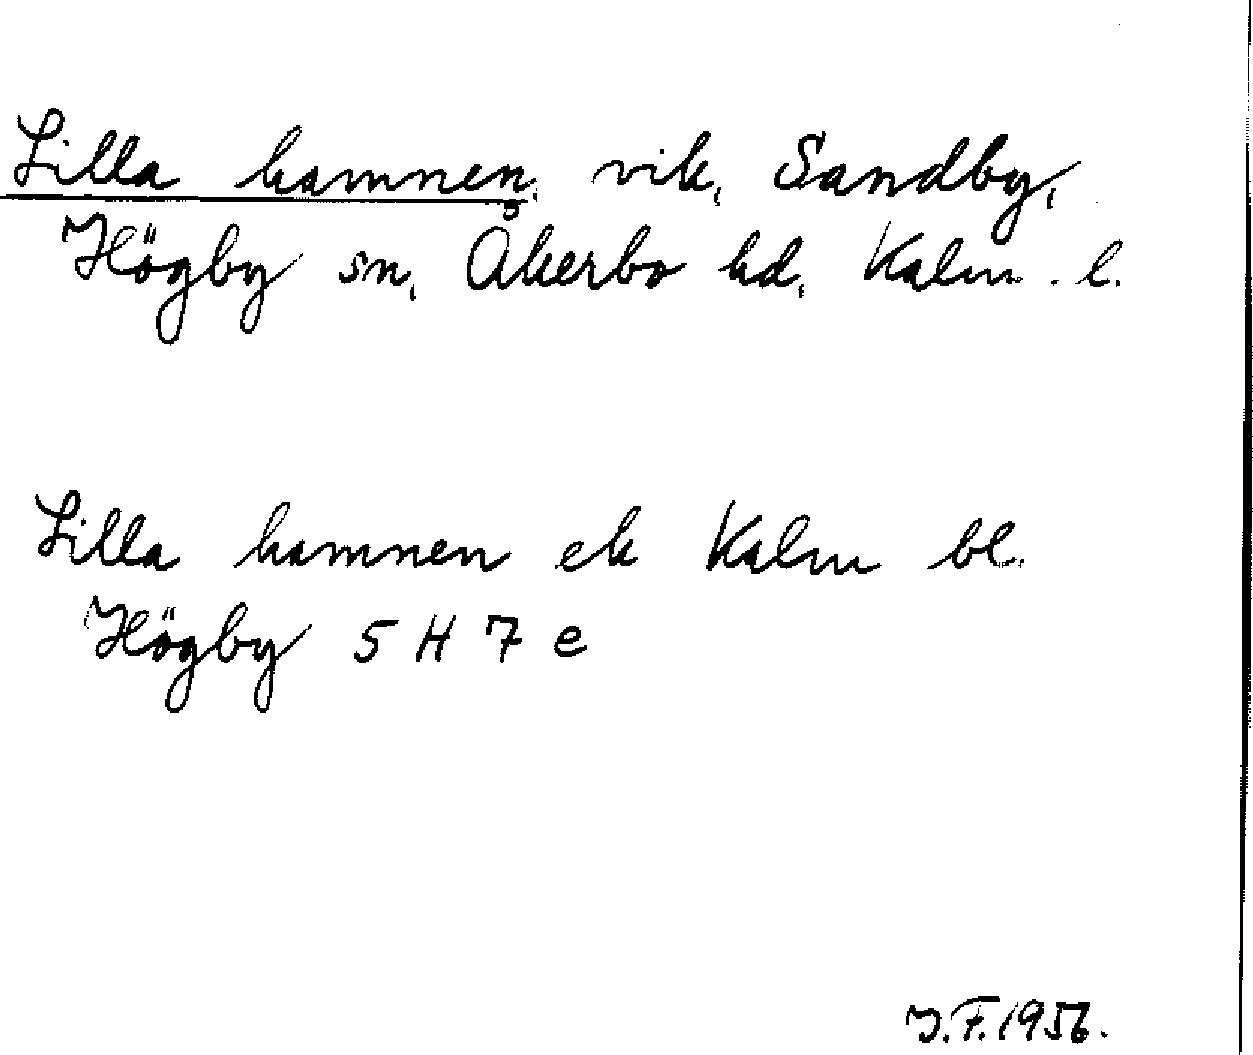 Lilla hamnen, vik, Sandby,
Högby sn, Åkerbo hd, Kalm. l.
Lilla hamnen ek Kalm bl.
Högby 5 H 7 e
J.F. 1956.